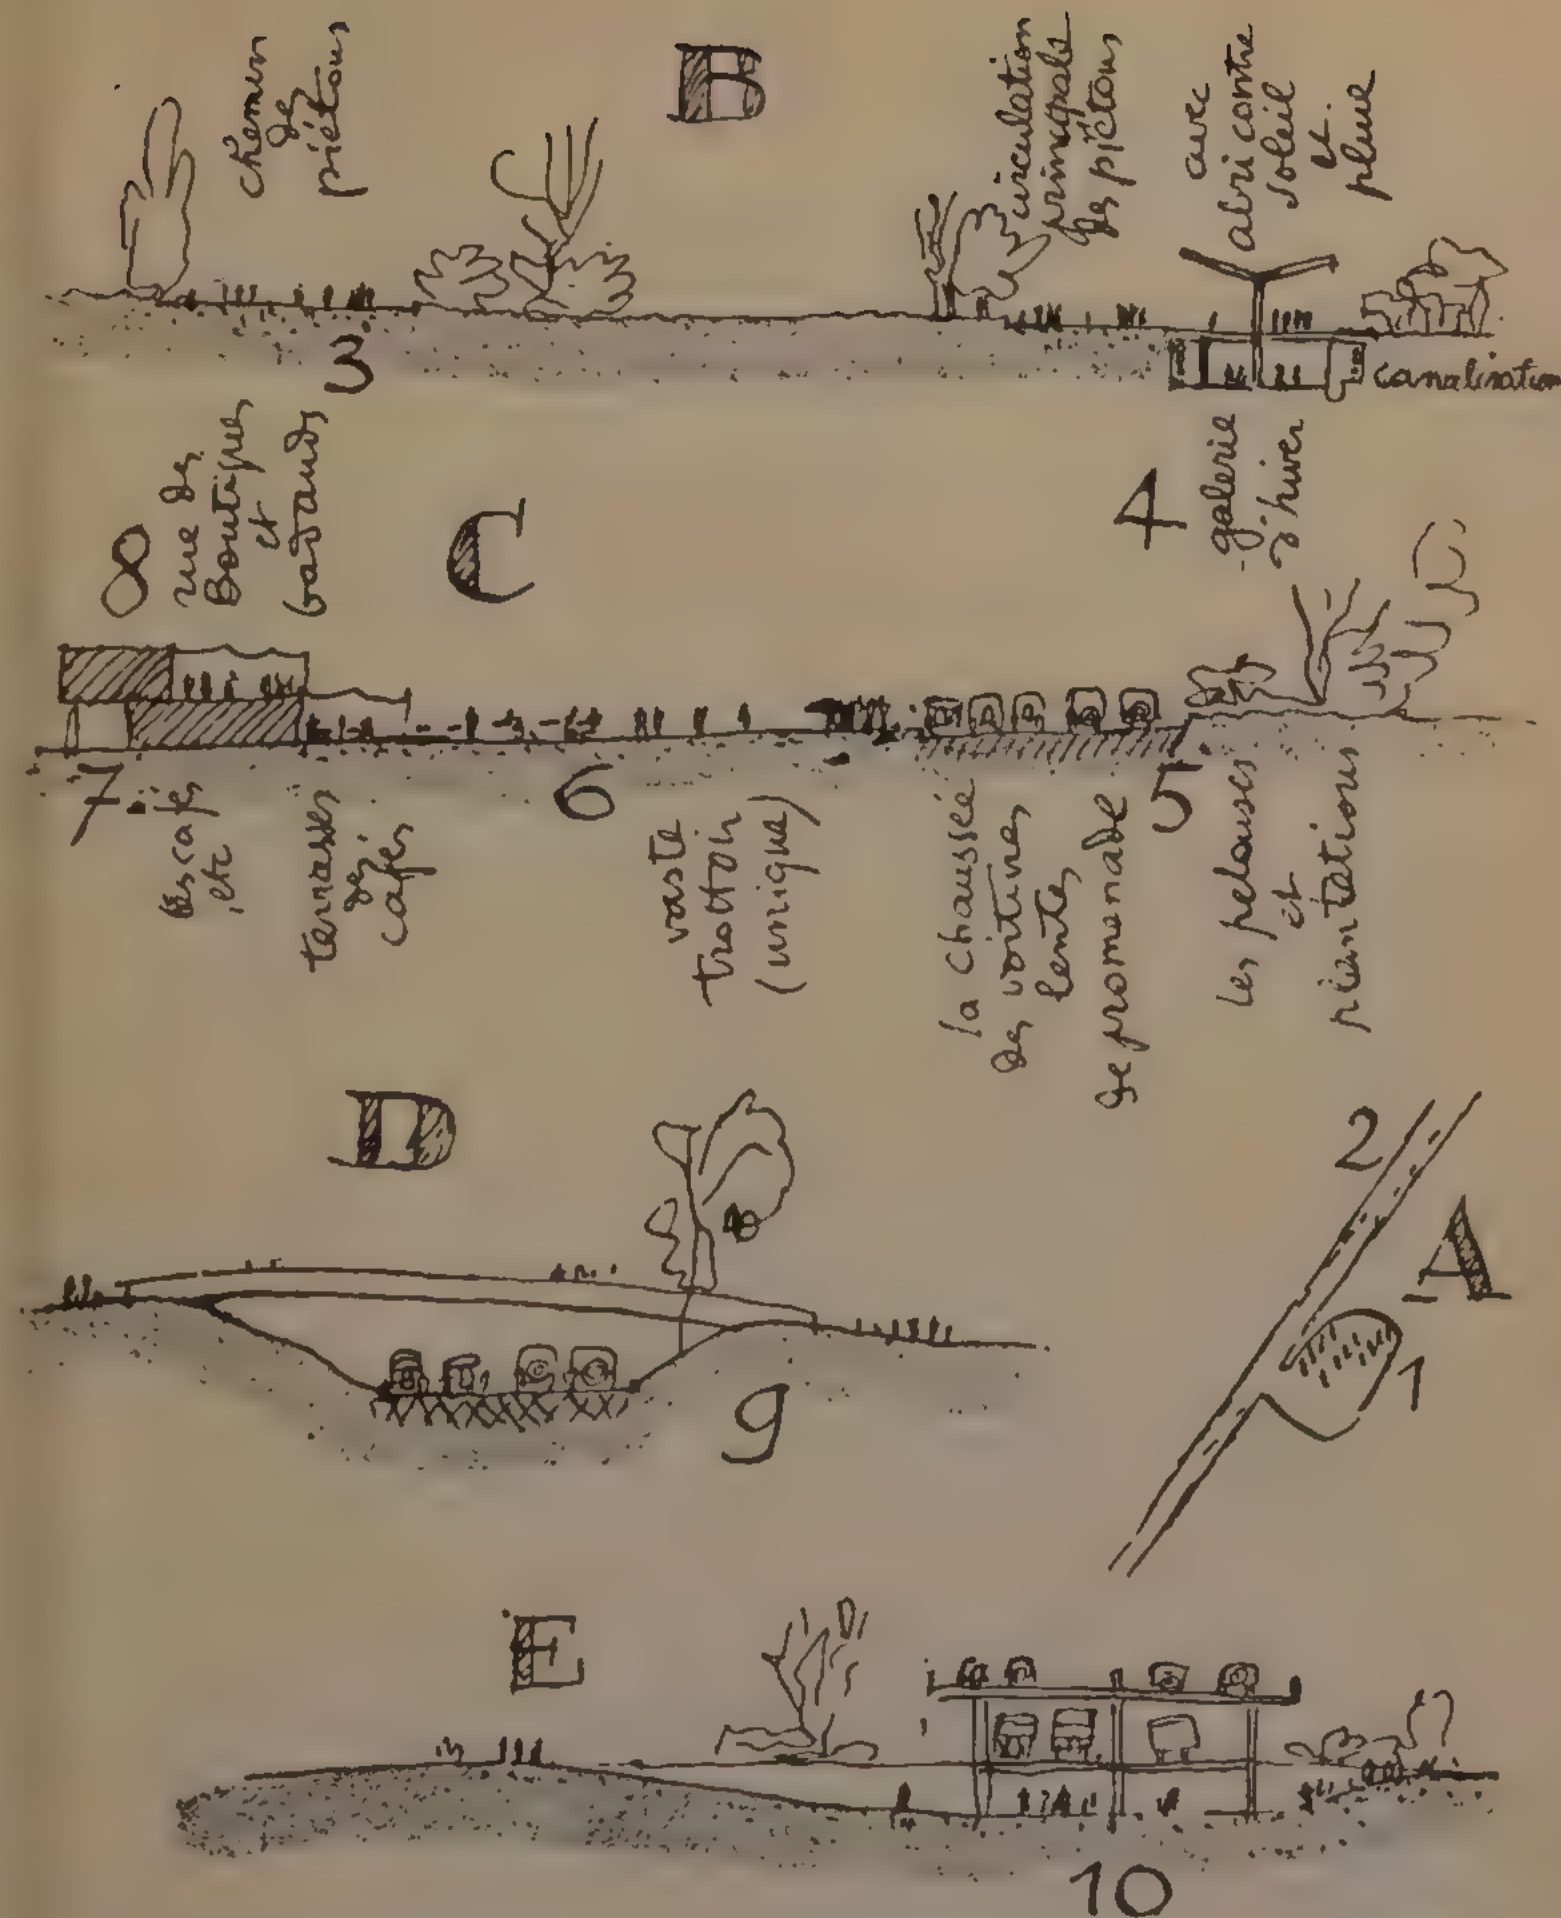 B
chemin
des
piétons
circulation
principale
des piétons
avec
abri contre
soleil
et
pluie
3
canalisation
4
galerie
d'hiver
8
rue des
Boutiques
et
badauds
C
7
les cafés
etc
terrasses
des
cafés
6
vaste
trottoir
(unique)
la chaussée
des voitures
lentes
de promenade
5
les pelouses
et
plantations
D
2
A
1
9
E
10